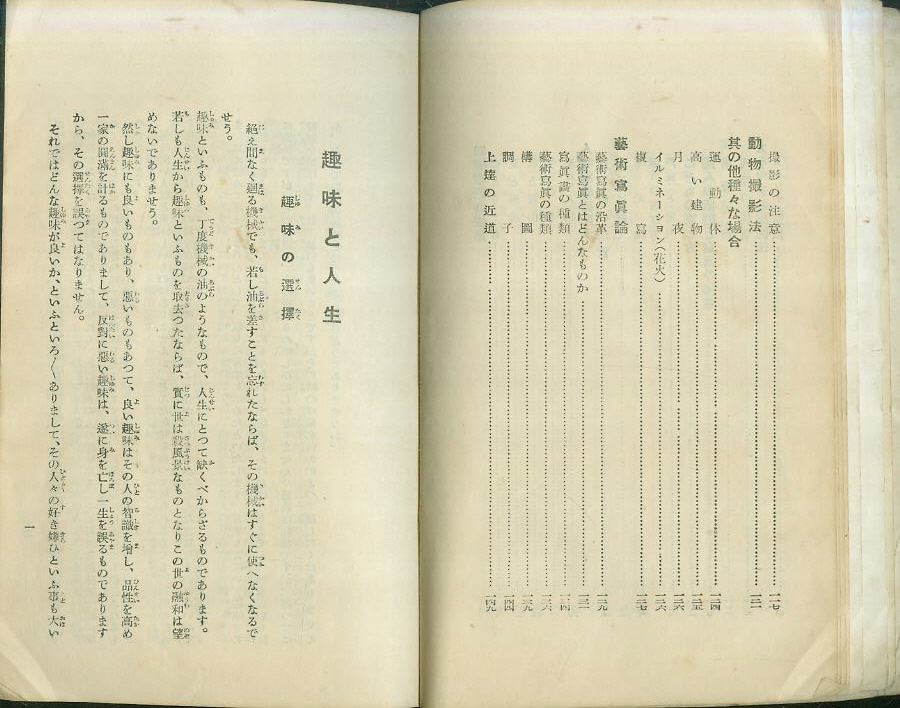 撮影の注意
動物撮影法
其の他種々な場合
運動体
高い建物
月夜
イルミネーション(花火)
複写
藝術寫眞論
藝術寫眞の沿革
藝術寫眞とはどんなものか
寫眞畫の種類
藝術寫眞の種類
構圖
調子
上達の近道
趣味と人生
趣味の選擇
絕え間なく廻る機械でも、若し油を差すことを忘れたならば、その機械はすぐに使へなくなるで
せう。
趣味といふものも、丁度機械の油のようなもので、人生にとつて缺くべからざるものであります。
若しも人生から趣味といふものを取去つたならば、實に世は殺風景なものとなりこの世の融和は望
めないでありませう。
然し趣味にも良いものもあり、惡いものもあつて、良い趣味はその人の智識を增し、品性を高め
一家の圓滿を計るものでありまして、反對に惡い趣味は、遂に身を亡し一生を誤るものであります
から、その選擇を誤つてはなりません。
それではどんな趣味が良いか、といふといろ〱ありまして、その人々の好き嫌ひといふ事も大い
一